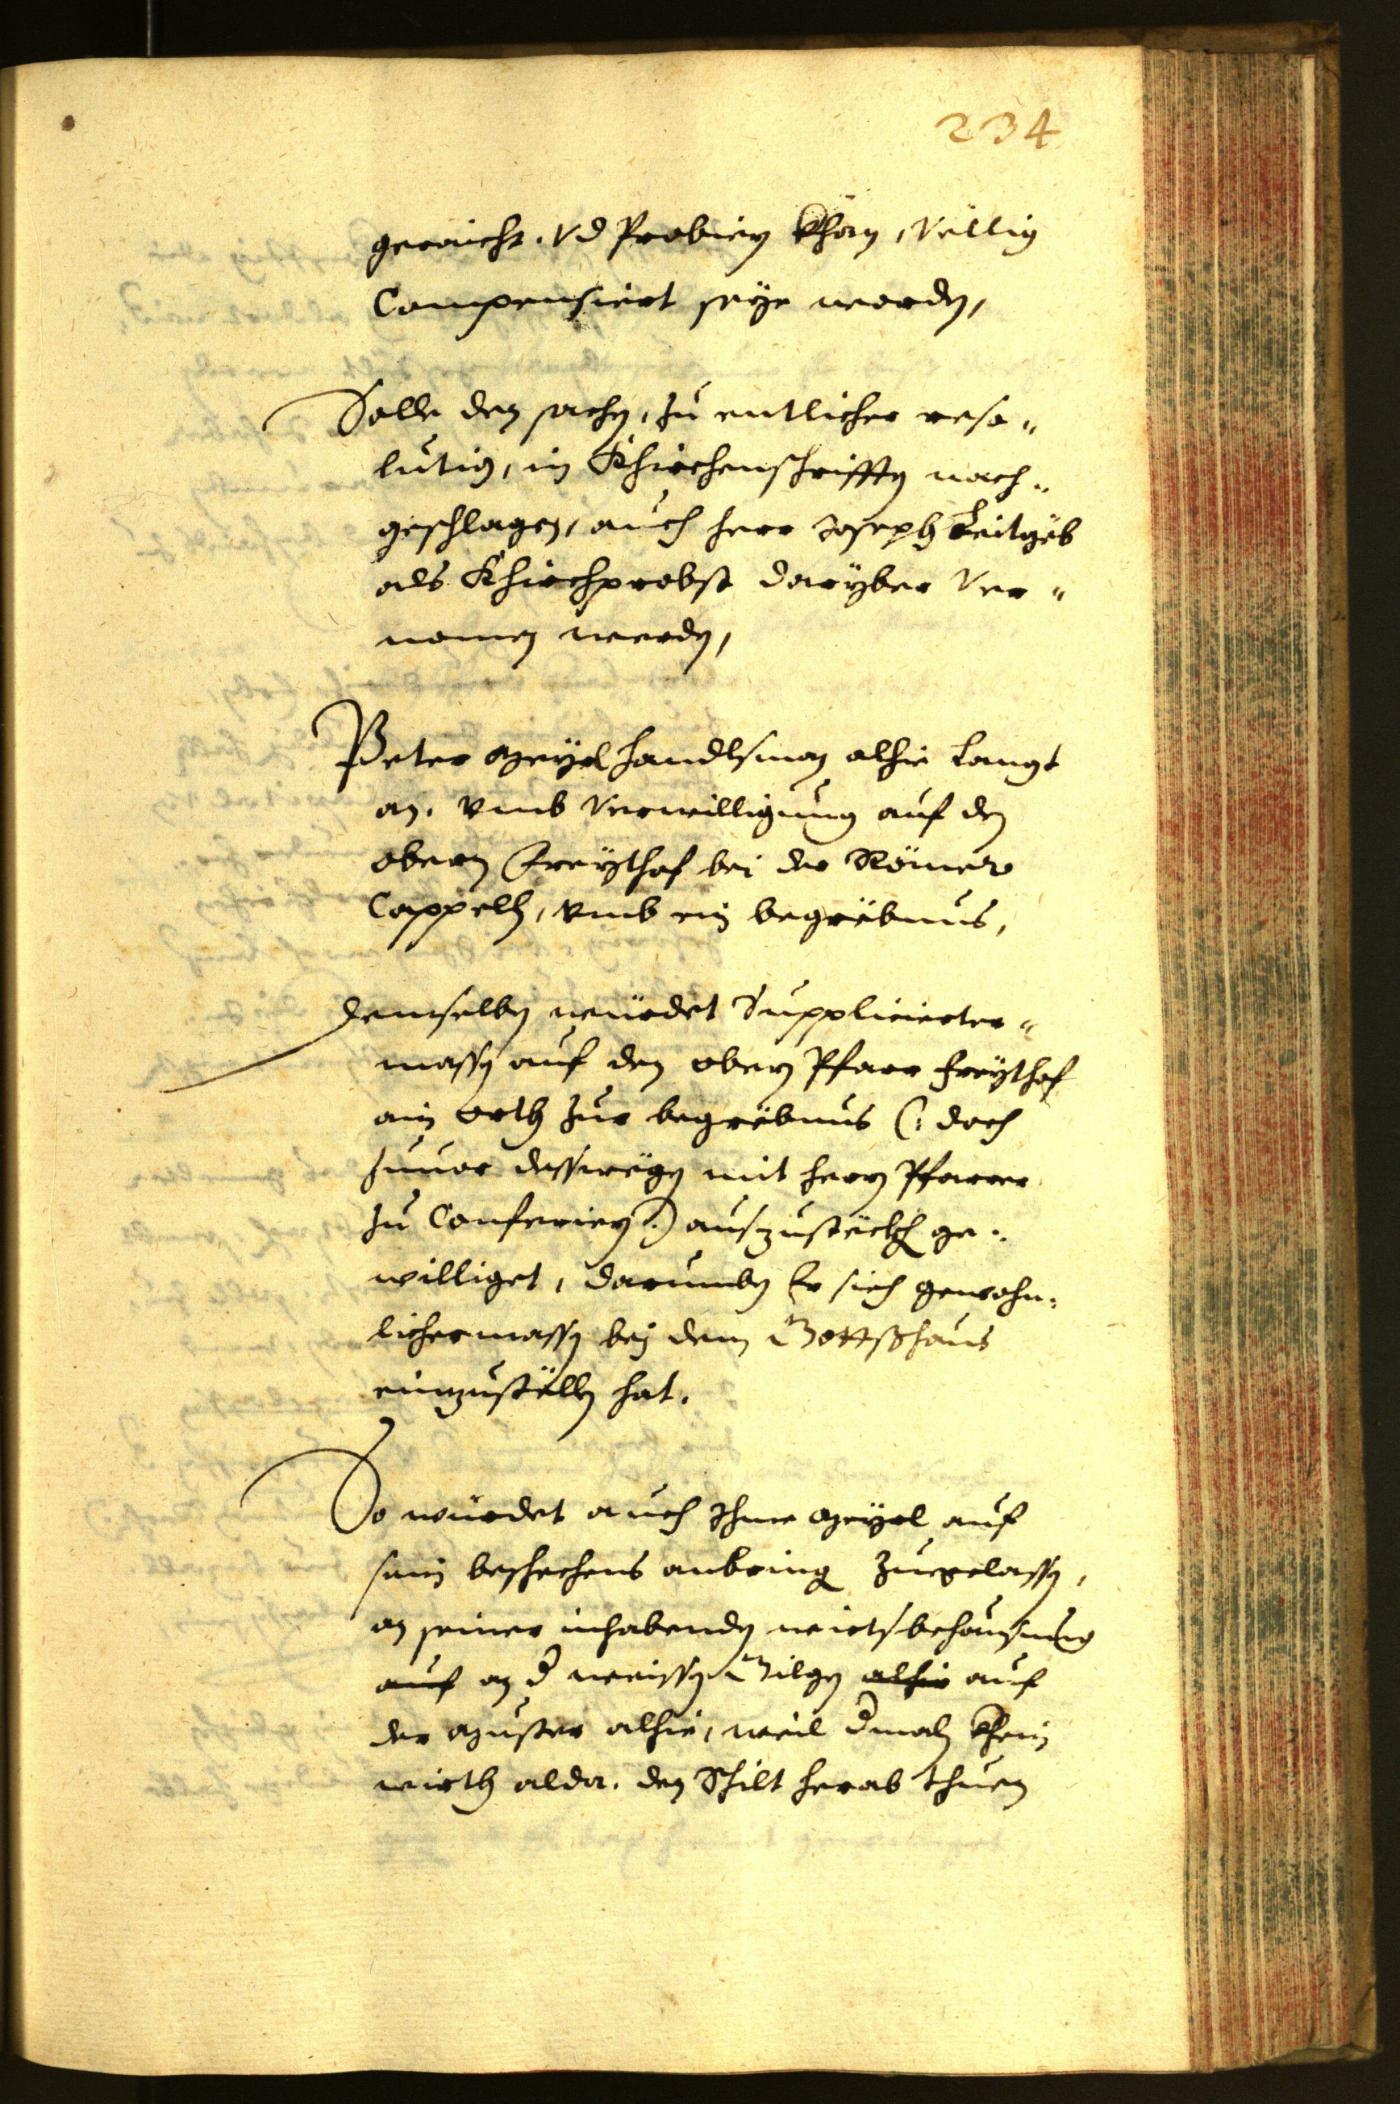 234
geraicht. Vd Probiern khan, Völlig
Compensiert seye worden,
Solle den sachen, zu entlicher reso„
lution, in Khirchenschrifften nach„
geschlagen, auch herr Joseph Leitgeb
als Khirchprobst daryber Ver„
nomen werden,
Peter Meyrl handlsman alhie langt
an. vmb Verwilligung auf den
obern Freythof bei der Römer
Cappelln, vmb ein begrebnus,
Demselben würdet Supplicierter„
massen auf den obern Pfarr Freythof
ain orth zur begrebnus (: doch
zuuor desswegen mit herrn Pfarrer
zu Conferiern :) auszusteckhen ge„
williget, darumben Er sich gewohn„
lichermassen bey dem Gottshaus
einzustellen hat.
So würdet auch Ihme Meyrl auf
sein beschechens anbringen zuegelassen,
an seiner inhabenden wirtsbehausung
auf an d weissen Gilgen alhie auf
der Muster alhie, weil dmaln khein
wirth alda. den Schilt herab thuen